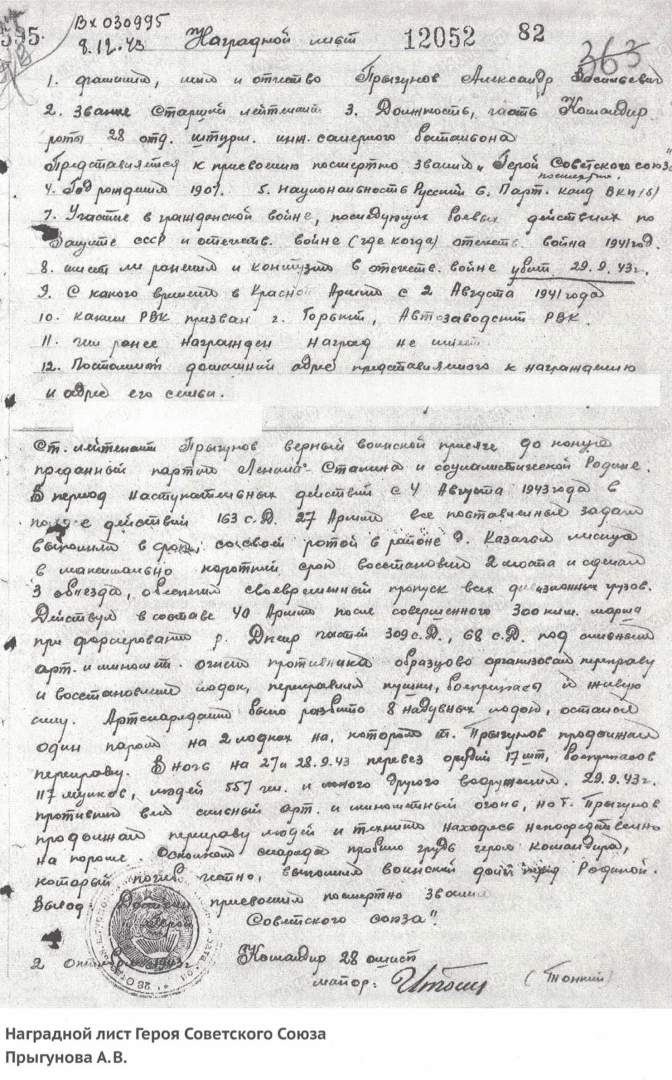 Вх 030995
595.
8.12.43 Наградной лист 12052 82
363
1. фамилия, имя и отчество Прыгунов Александр Васильевич
2. Звание Старший лейтенант 3. Должность, часть Командир
роты 28 отд. штурм. инж. саперного батальона
Представляется к присвоению посмертно звания "Герой Советского союза"
посмертно.
4. Год рождения 1907. 5. Национальность Русский 6. Парт. канд ВКП(б)
7. Участие в гражданской войне, последующих боевых действиях по
Защите СССР и отечеств. войне (где когда) отечеств. война 1941год.
8. имеет ли ранения и контузии в отечеств. войне убит 29.9.43г.
9. С какого времени в Красной Армии с 2 Августа 1941 года
10. Каким РВК призван г. Горький, Автозаводский РВК.
11. Чем ранее награжден наград не имеет
12. Постоянный домашний адрес представляемого к награждению
и адрес его семьи.
Ст. лейтенант Прыгунов верный воинской присяге до конца
преданный партии Ленина-Сталина и социалистической Родине.
В период наступательных действий с 4 Августа 1943 года в
действий 163 с.д. 27 Армии все поставленные задачи
выполнил в срок, со своей ротой в районе д. Казачья лисица
в максимально короткий срок восстановил 2 моста и сделал
3 объезда, обеспечил своевременный пропуск всех дивизионных грузов.
Действуя в составе 40 Армии после совершенного 300 клм. марша
при форсировании р. Днепр частей 309 с.д., 68 с.д. под сильным
арт. и миномет. огнем противника образцово организовал переправу
и восстановление лодок, переправляя пушки, боеприпасы и живую
силу. Артснарядами было разбито 8 надувных лодок, остался
один паром на 2 лодках на, котором т. Прыгунов продолжал
переправу. В ночь на 27 и 28.9.43 перевез орудий 17 шт, боеприпасов
117 ящиков, людей 557 чел. и много другого вооружения. 29.9.43г.
противник вел сильный арт. и минометный огонь, но т. Прыгунов
продолжал переправу людей и техники находясь непосредственно
на пароме. Осколком снаряда пробило грудь героя командира,
который погиб честно, выполнив воинский долг перед Родиной.
Вывод: Достоин присвоения посмертно звания
"Герой Советского союза".
2 октября 1943г. Командир 28 ошисп
майор: (Тонкий)
Наградной лист Героя Советского Союза
Прыгунова А.В.